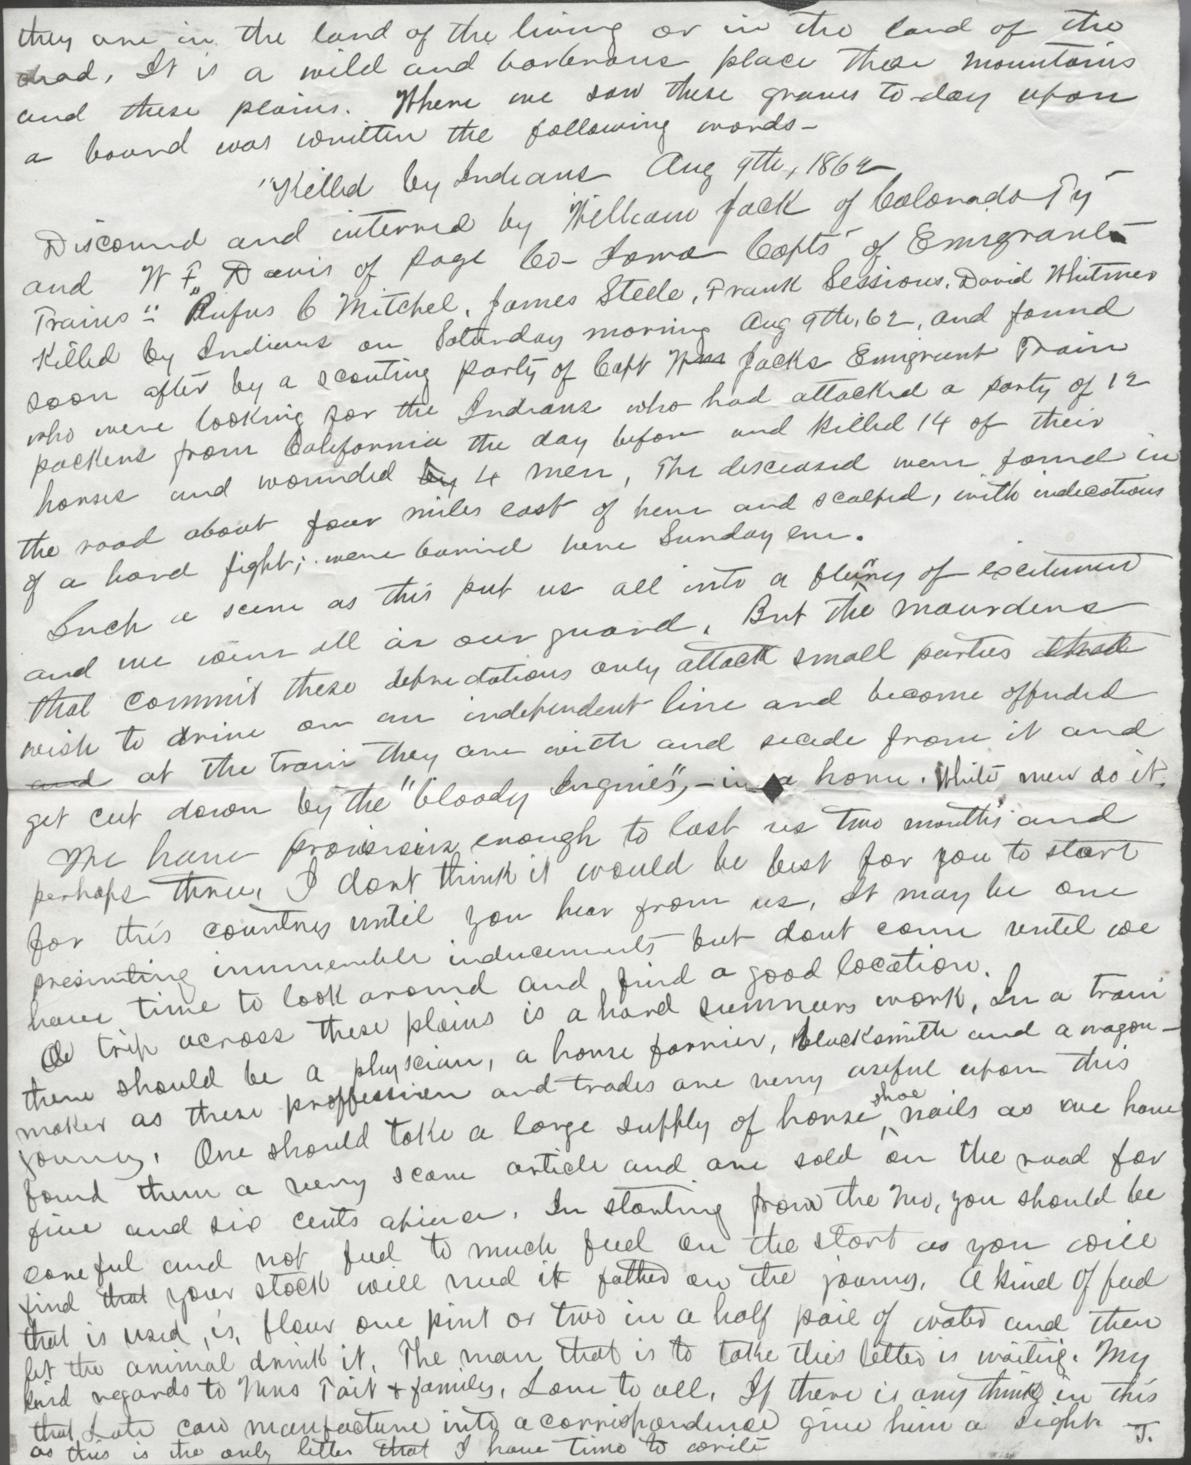 they are in the land of the living or in the land of the
dead, It is a wild and barberous place these mountains
and these plains. Where we saw these graves to-day upon
a board was written the following words-
"Killed by Indians Aug 9th, 1862
Discound and interred by William Jack of Colorado Ty
and W F Davis of Page Co- Iowa Capts of Emigrant
Trains" "Rufus C Mitchel, James Steele, Frank Sessions, David Whitmer
Killed by Indians on Saturday morning Aug 9th, 62, and found
soon after by a scouting party of Capt Wm Jacks Emigrant Train
who were looking for the Indians who had attacked a party of 12
packers from California the day before and killed 14 of their
horses and wounded by 4 men, The desceased were found in
the road about four miles east of here and scalped, with indications
of a hard fight; were burried here Sunday eve.
Such a scene as this put us all into a of excitement
and we were all on our guard. But the maurders
that commit these depredations only attack small parties
wish to drive on an independent line and become offended
and at the train they are with and secede from it and
get cut down by the "bloody Ingines", - in a horn. White men do it.
We have provisions enough to last us two months and
perhaps three. I dont think it would be best for you to start
for this country until you hear from us, It may be one
presenting innumerable inducements but dont come until we
have time to look around and find a good location.
A trip across these plains is a hard summers work. In a train
there should be a physician, a horse farrier, blacksmith and a wagon-
maker as these proffession and trades are very useful upon this
journey. One should take a large supply of horse shoe nails as we have
found them a very scarce article and are sold on the road for
five and six cents apiece. In starting from the Mo, you should be
careful and not feed to much feed on the start as you will
find that your stock will need it on the journey. A kind of feed
that is used, is, flour one pint or two in a half pail of water and then
let the animal drink it. The man that is to take this letter is waiting. My
kind regards to Mrs Tait & family. Love to all. If there is any thing in this
that can manufacture into a correspondence give him a sight
as this is the only letter that I have time to write J.